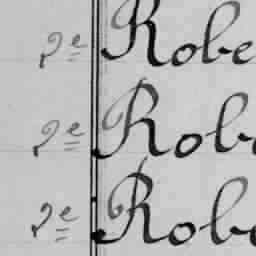 2e Robe
2e Rob
2e Robe